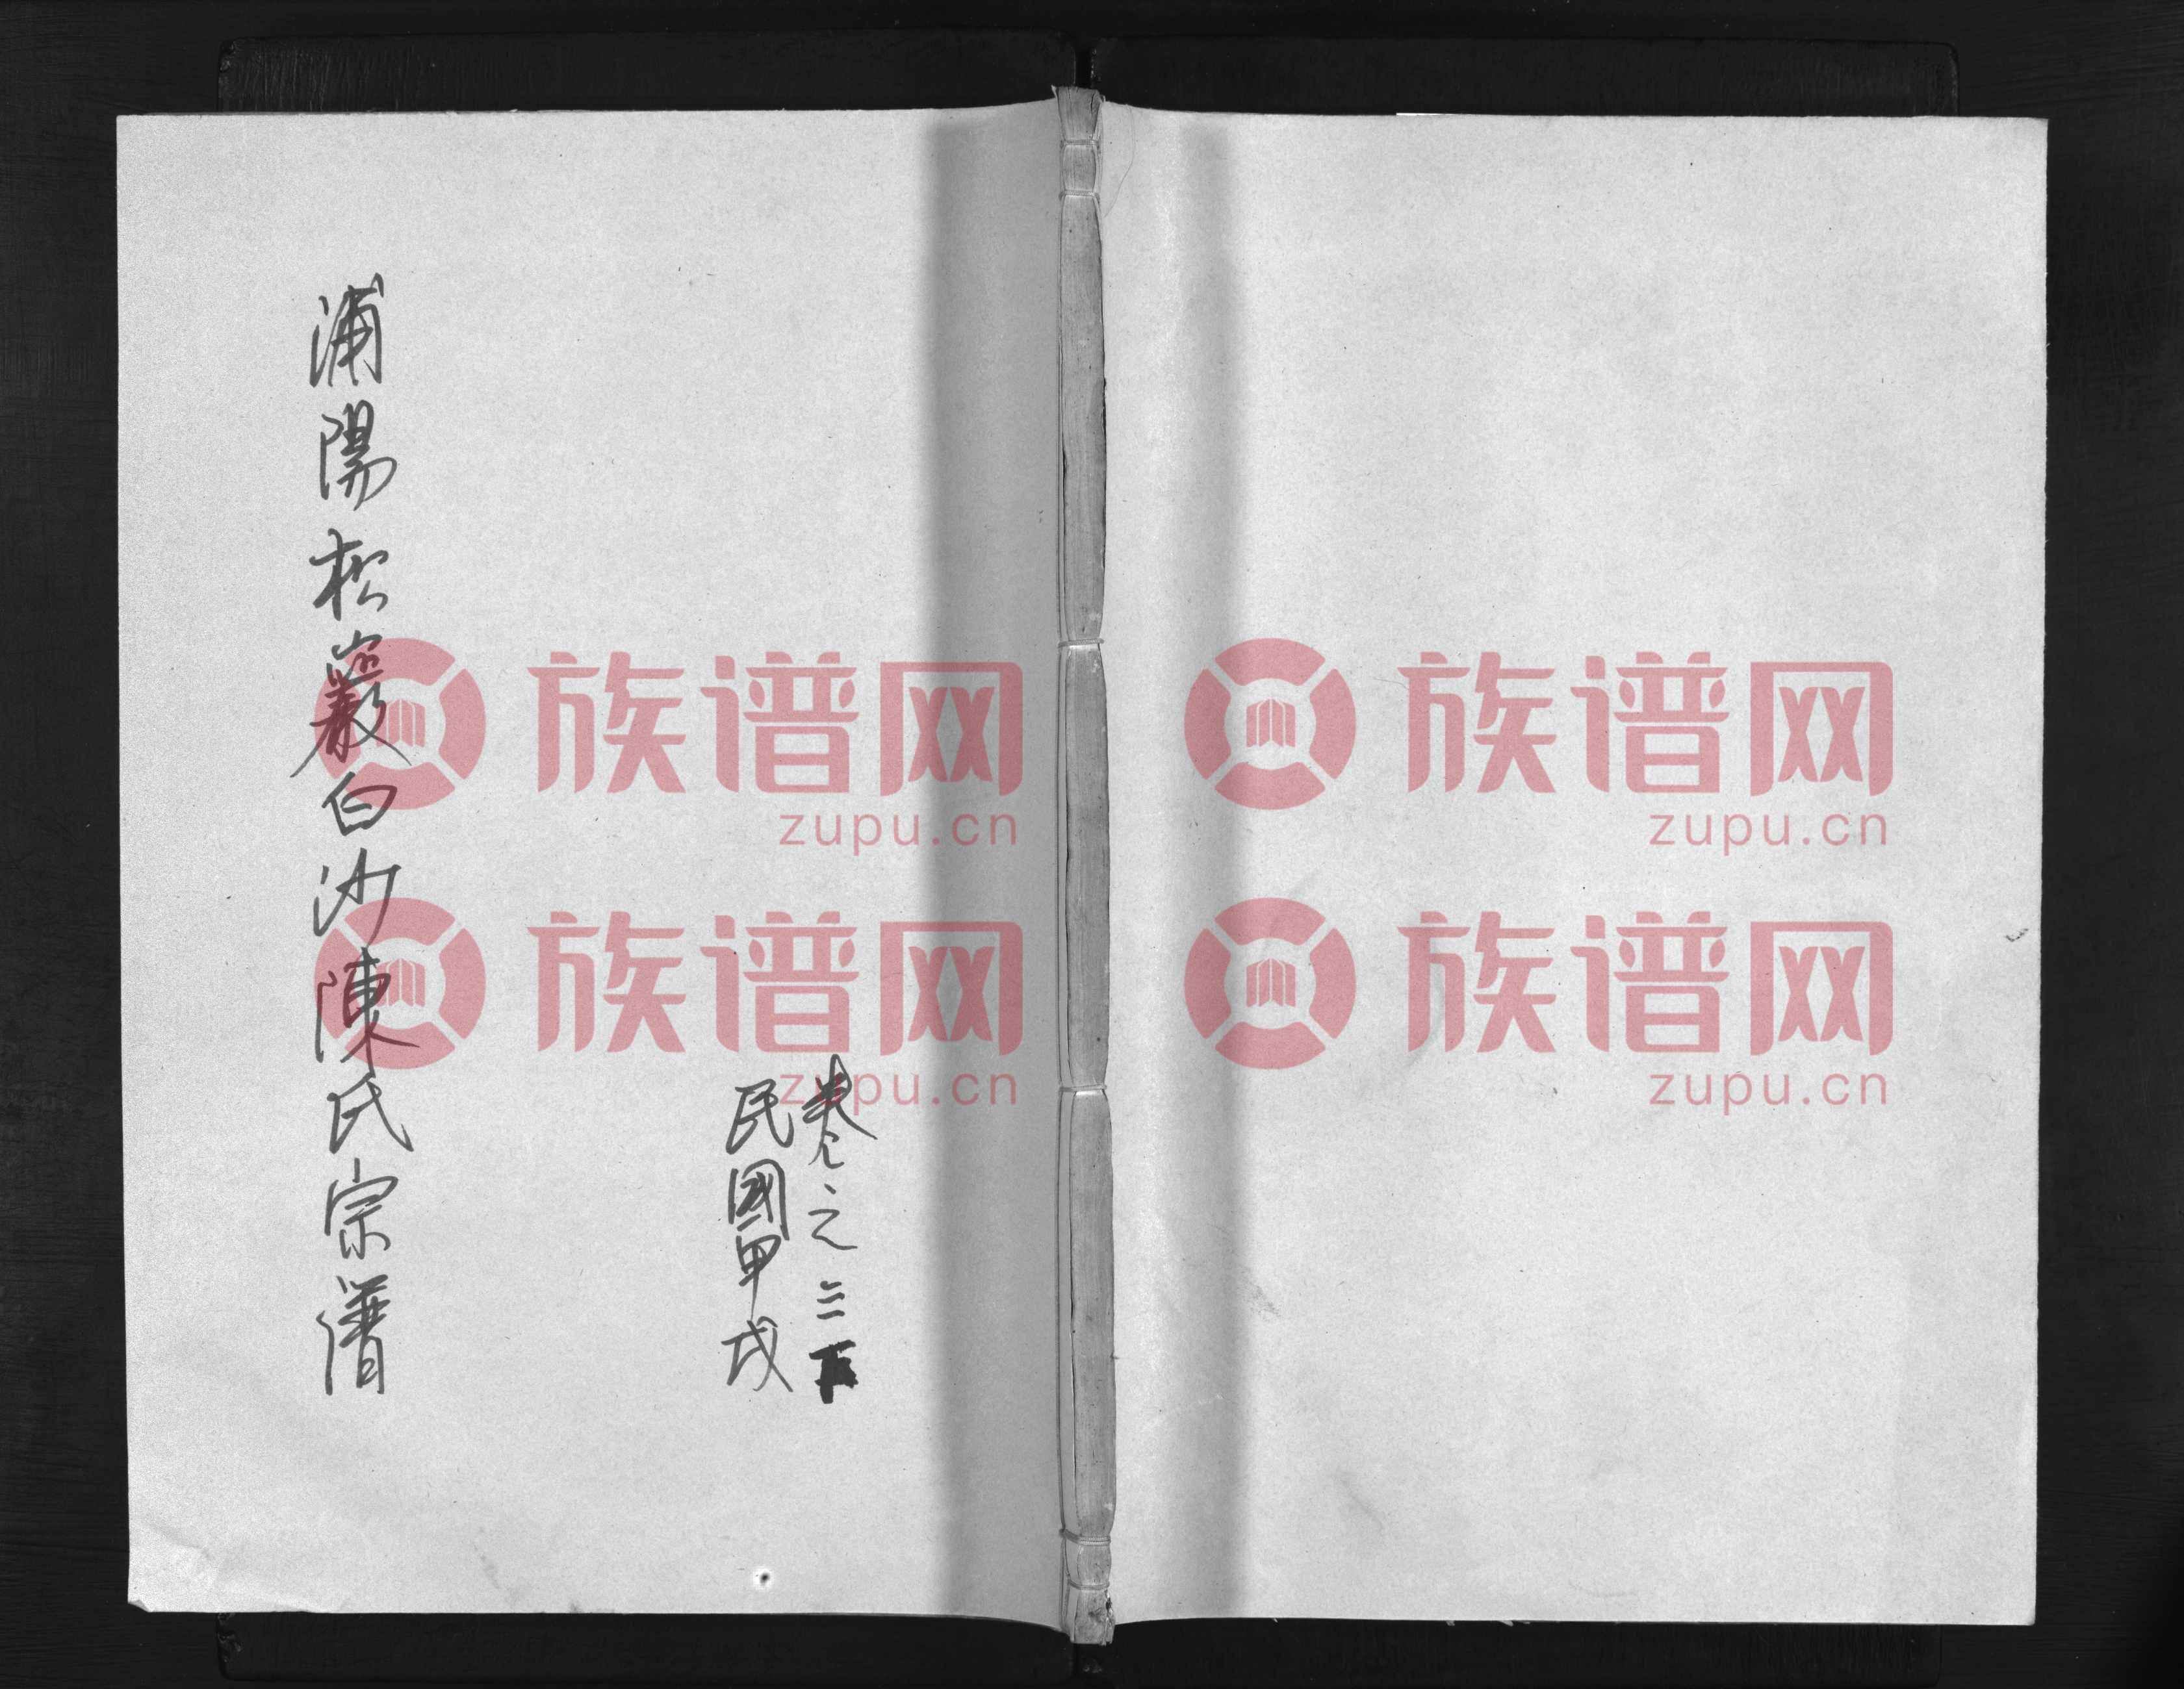 卷之三下
民國甲戌
浦陽松巖白沙陳氏宗譜
族谱网
zupu.cn
族谱网
zupu.cn
族谱网
zupu.cn
族谱网
zupu.cn